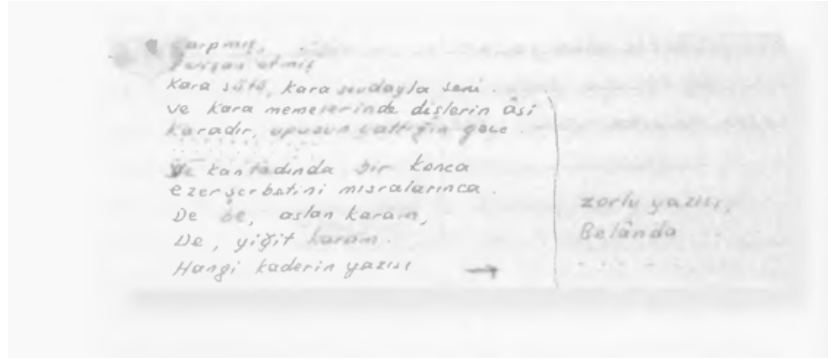 Çarpmış,
Perişan etmiş
Kara sütü, kara sevdayla seni.
Ve kara memelerinde dişlerin âsi
Karadır, upuzun yattığın gece.
. . . . . . . .
Ve kan tadında bir konca
ezer şerbetini mısralarınca.
De be, aslan karam,
De, yiğit karam.
Hangi kaderin yazısı →
zorlu yazısı,
Belânda
. . . . . . .